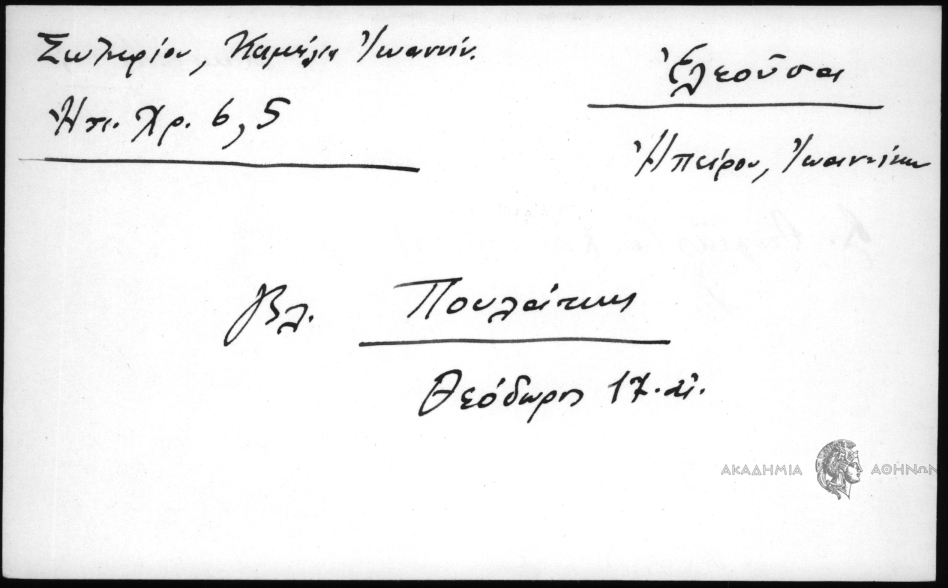 Σωτηρίου, Καμήλια Ἰωαννίν.
Ἠπ. Χρ. 6, 5
Ἐλεοῦσαι
Ἠπείρου, Ἰωαννίνων
βλ. Πουλάκης
Θεόδωρος 17. αἰ.
ΑΚΑΔΗΜΙΑ ΑΘΗΝΩΝ